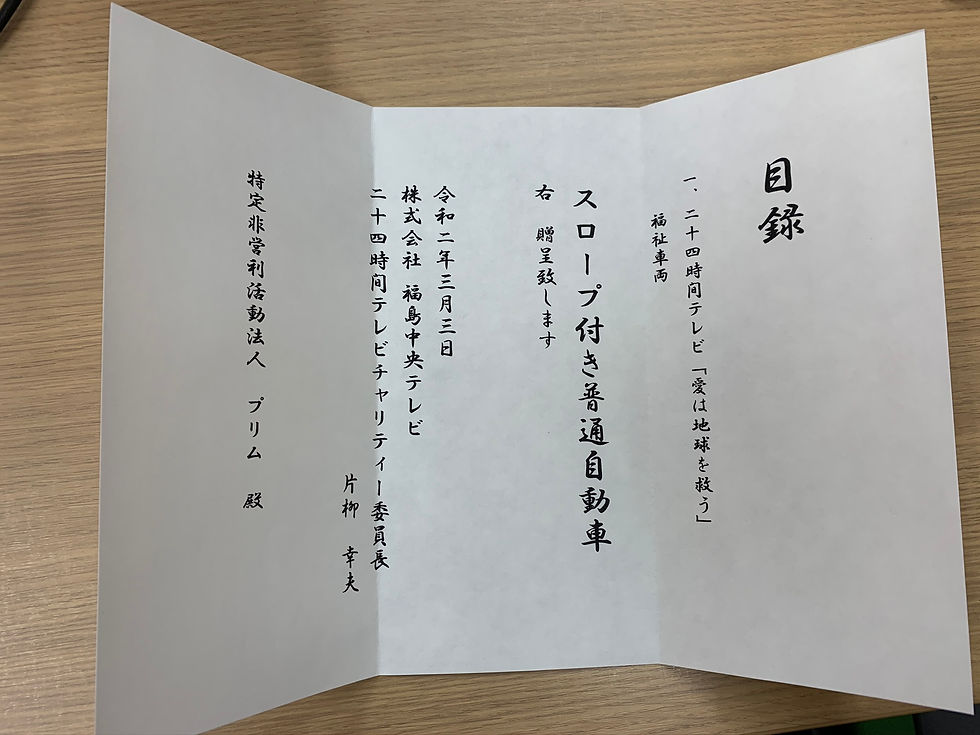 目録
一、二十四時間テレビ「愛は地球を救う」
福祉車両
スロープ付き普通自動車
右　贈呈致します
令和二年三月三日
株式会社 福島中央テレビ
二十四時間テレビチャリティー委員長
片柳　幸夫
特定非営利活動法人　プリム　殿